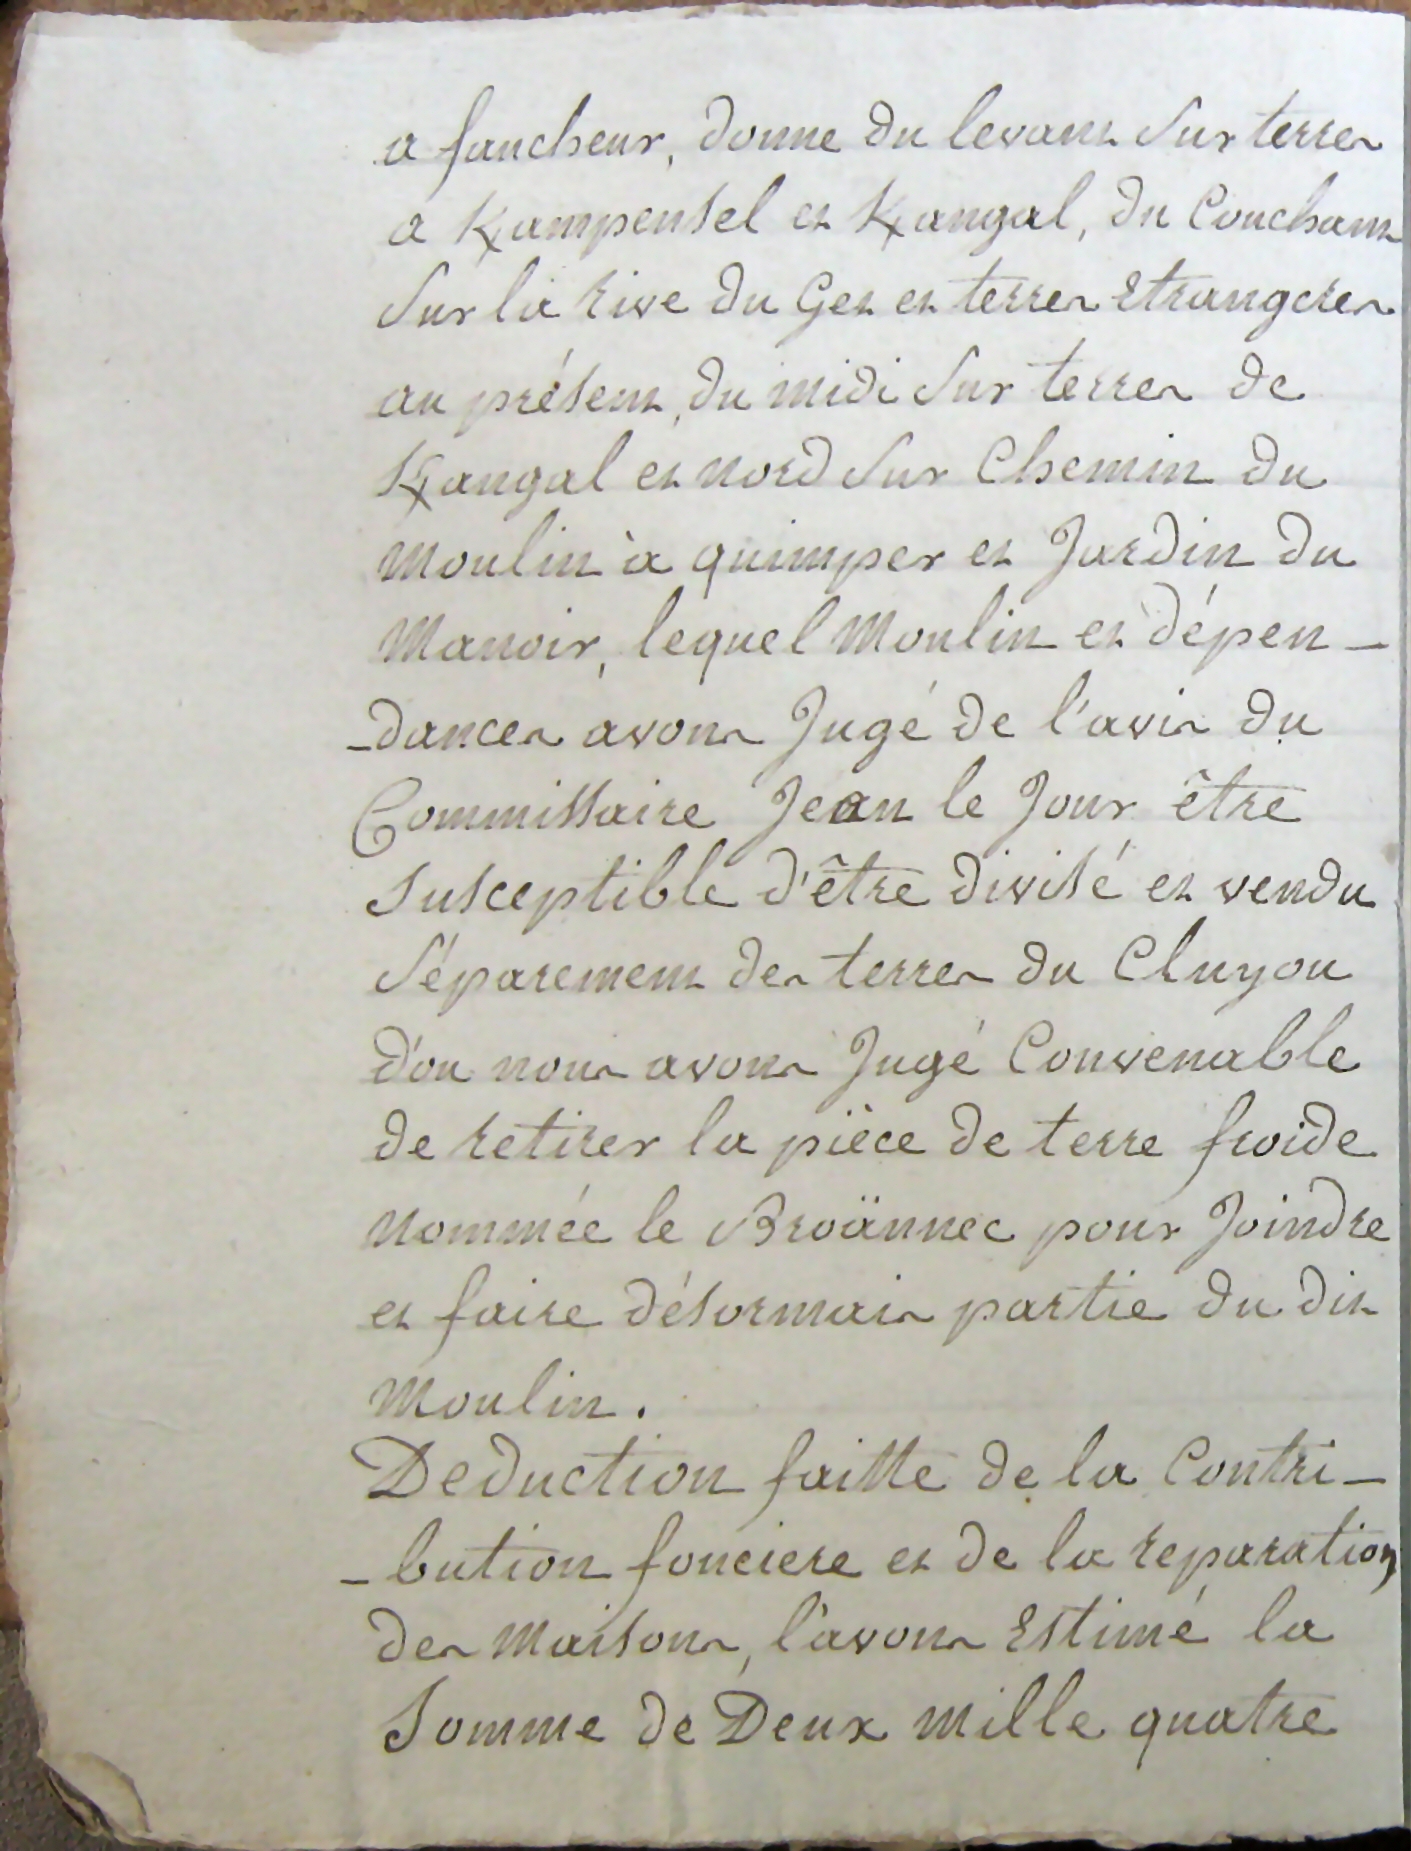 a faucheur, donne du levant sur terres
a K/ampensel et K/angal, du Couchant
sur la rive du Get et terres Etrangeres
au présent, du midi sur terres de
K/angal et nord sur Chemin du
moulin à quimper et Jardin du
manoir, lequel moulin et dépen-
-dances avons Jugé de l'avis du
Commissaire Jean le Jour être
susceptible d'être divisé et vendu
séparement des terres du Cluyou
d'ou nous avons Jugé Convenable
de retirer la pièce de terre froide
nommée le Broännec pour Joindre
et faire désormais partie du dit
moulin.
Deduction faitte de la Contri-
-bution fonciere et de la reparation
des maisons, l'avons Estimé la
somme de Deux mille quatre